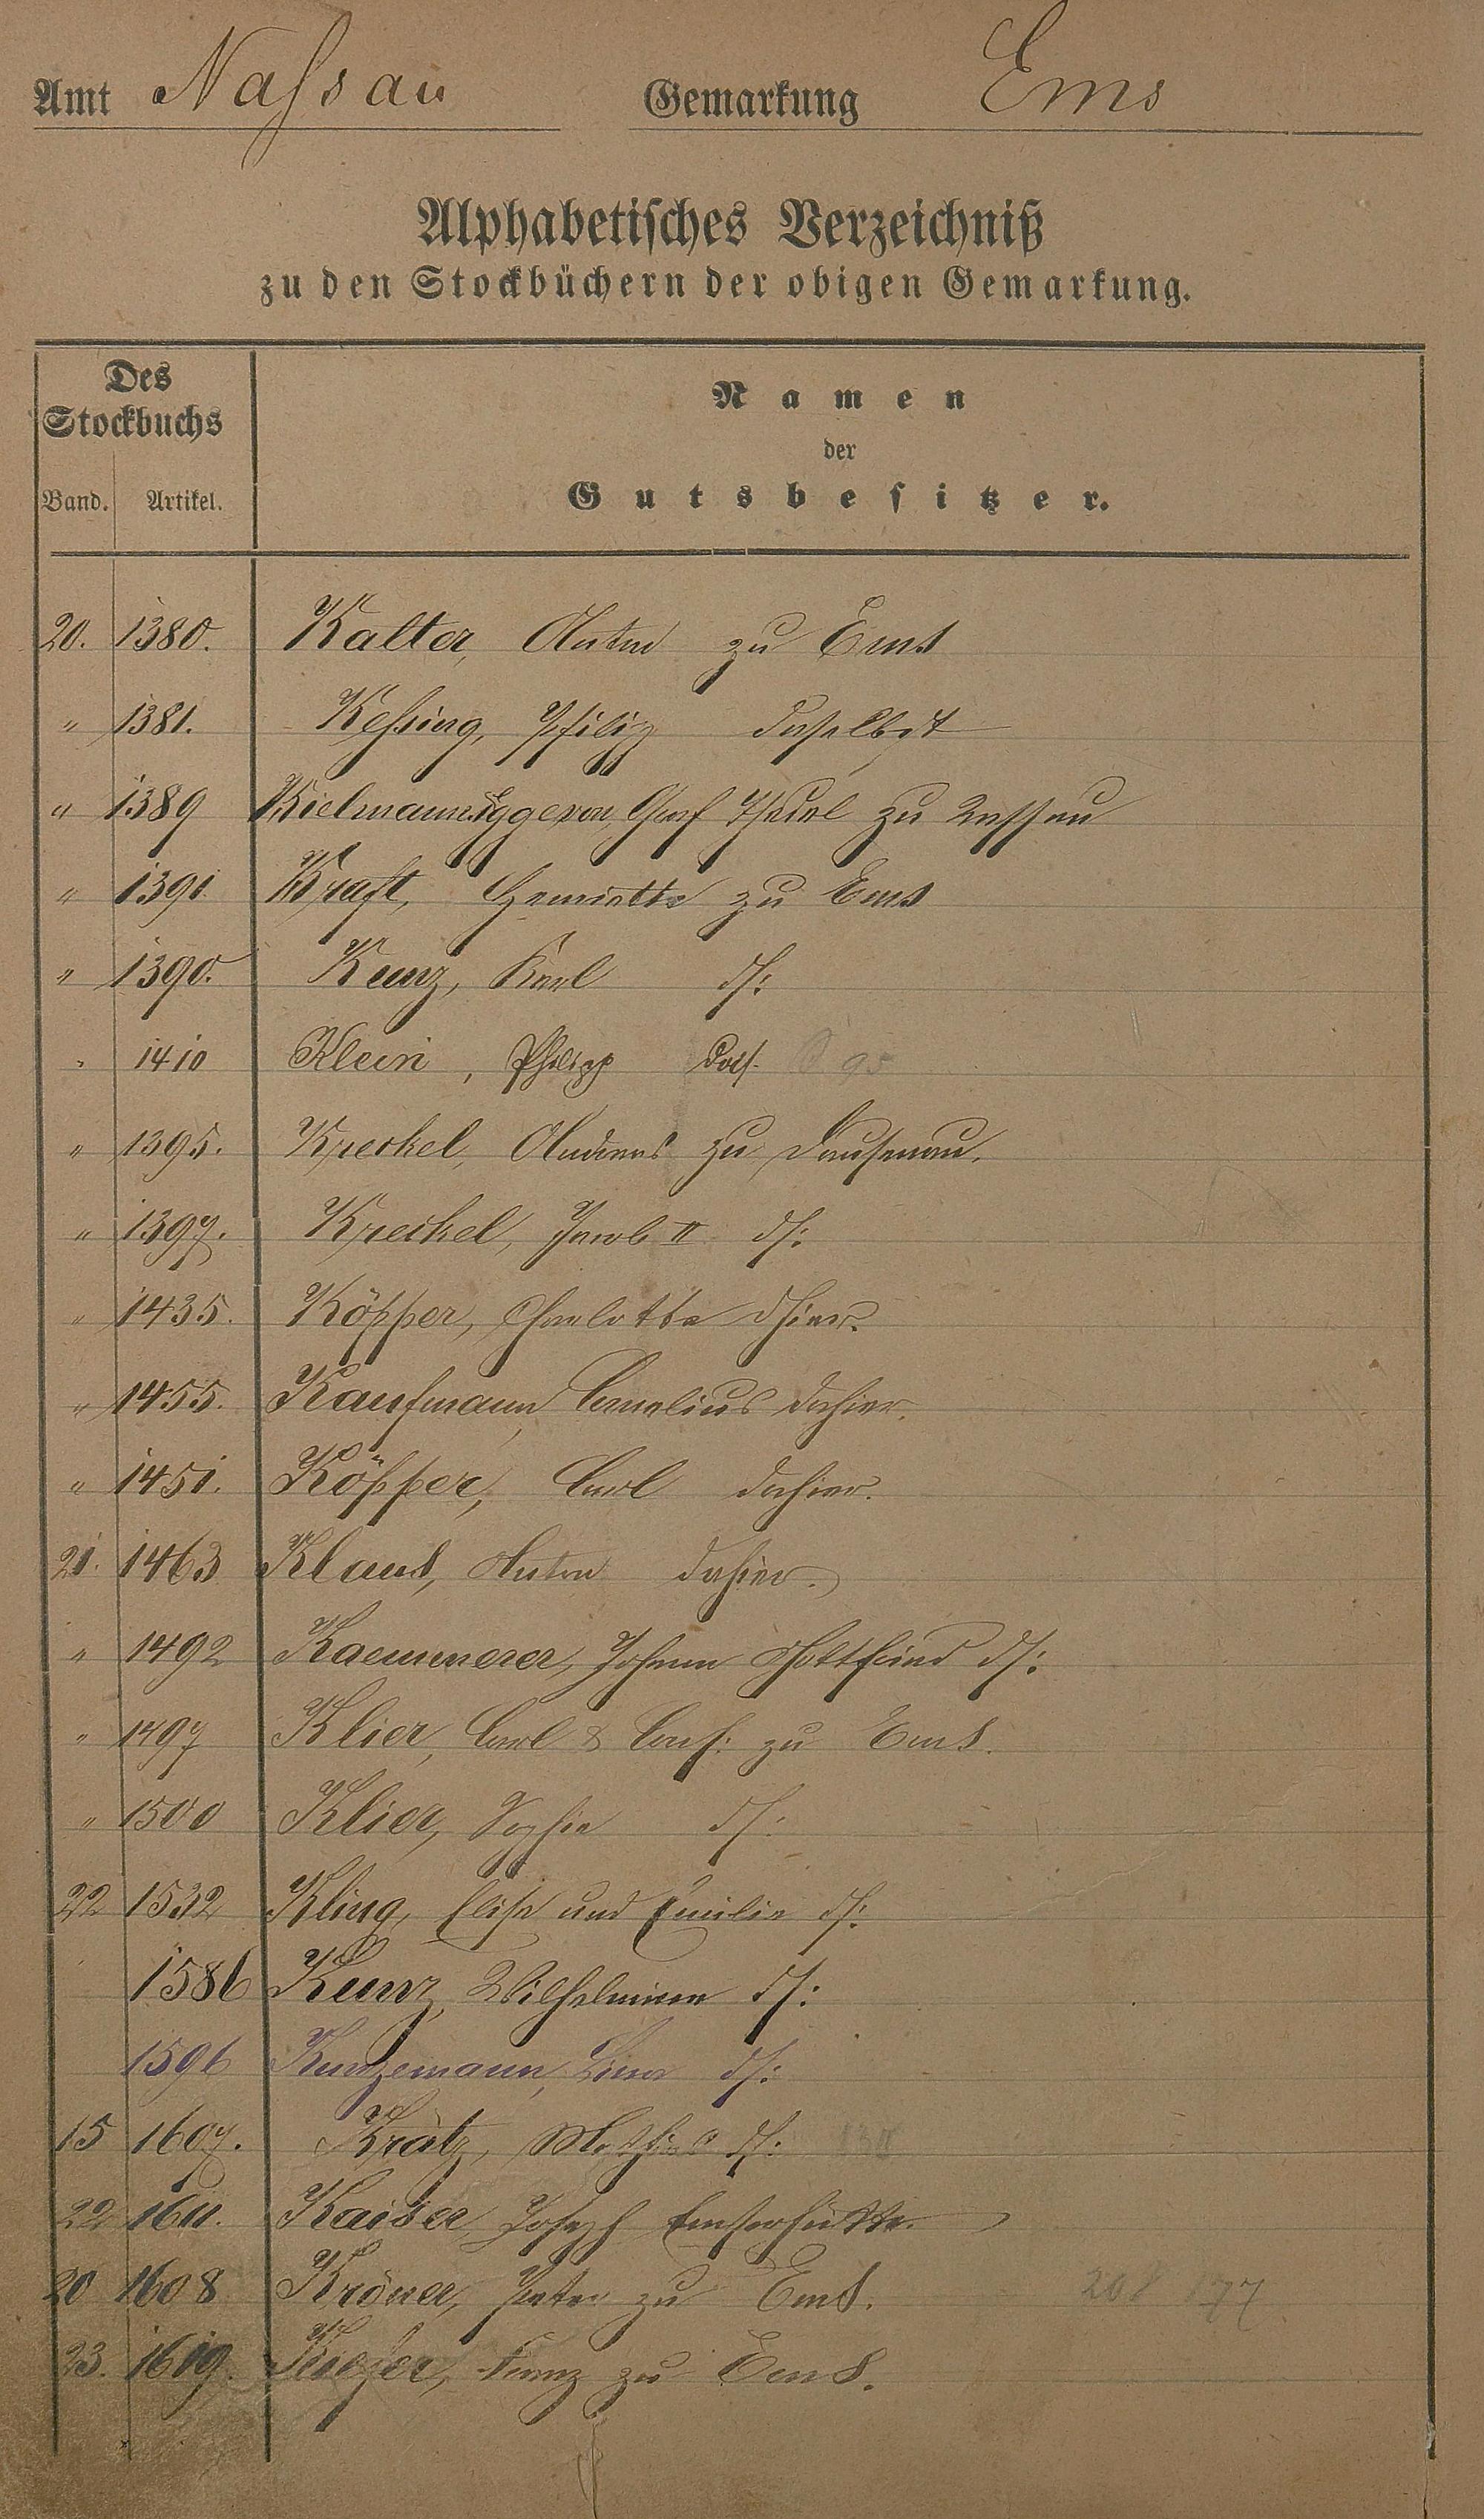 Amt Naſsau Gemarkung Ems
Alphabetiſches Verzeichniß
zu den Stockbüchern der obigen Gemarkung.
Des
Stockbuchs
Band. Artikel.
Namen
der
Gutsbeſitzer.
20. 1380. Kalter, Anton zu Ems
" 1381. Keſsing, Philipp daselbst
" 1389 Kielmannsegge von, Graf Thedel zu Nassau
" 1391 Kraft, Henriette zu Ems
" 1390. Kunz, Karl ds:
" 1410 Klein, Philipp das.
" 1395. Kreckel, Andreas zu Dausenau.
" 1397. Kreckel, Jacob II ds:
" 1435. Köpper, Charlotte dhier.
" 1455. Kaufmann, Cornelius dahier.
" 1451. Köpper, Carl dahier.
21. 1463 Klaus, Anton dahier.
" 1492 Kaemmerer, Johann Gottfried ds:
" 1497 Klier, Carl & Cons: zu Ems.
" 1500 Klier, Sophie ds:
22 1532 Kling, Elise und Emilie ds:
1586 Kunz, Wilhelmine ds:
1596 Kunzemann, Lina ds:
15 1607. Krätz, Mathias ds:
22 1611. Kaiser, Joseph Emserhütte.
20 1608 Kröner, Peter zu Ems. 208 177
23. 1619. Kiefer, Franz zu Ems.